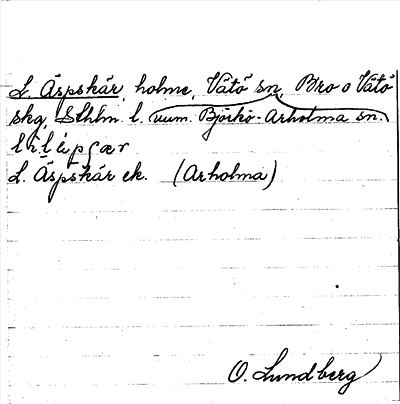 L. Äspskär, holme, Vätö sn, Bro o Vätö
skg, Sthlm. l. num. Björkö-Arholma sn.
L. Äspskär ek. (Arholma)
O. Lundberg